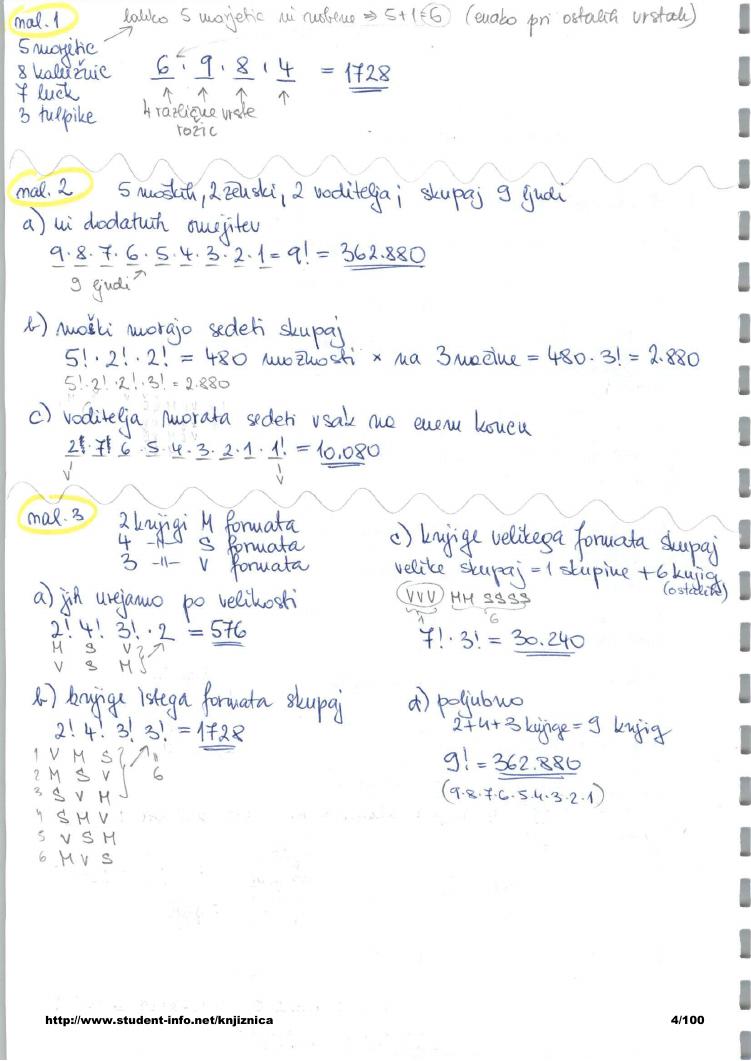 nal. 1
lahko 5 marjetic ali nobene ⇒ 5+1=6 (enako pri ostalih vrstah)
5 marjetic
8 kalužnic
7 lučk
3 tulpike
6 · 9 · 8 · 4 = 1728
4 različne vrste
rožic
nal. 2
5 moških, 2 ženski, 2 voditelja; skupaj 9 ljudi
a) ni dodatnih omejitev
9·8·7·6·5·4·3·2·1 = 9! = 362.880
9 ljudi
b) moški morajo sedeti skupaj
5!·2!·2! = 480 možnosti × na 3 načine = 480·3! = 2.880
5!·2!·2!·3! = 2.880
c) voditelja morata sedeti vsak na enem koncu
2!·7·6·5·4·3·2·1·1! = 10.080
nal. 3
2 knjigi M formata
4 -||- S formata
3 -||- V formata
a) jih urejamo po velikosti
2! 4! 3! · 2 = 576
M S V
V S M
b) knjige istega formata skupaj
2! 4! 3! 3! = 1728
6
1 V M S
2 M S V
3 S V M
4 S M V
5 V S M
6 M V S
c) knjige velikega formata skupaj
velike skupaj = 1 skupina + 6 knjig
(ostalih)
VVV MM SSSS
1 6
7! · 3! = 30.240
d) poljubno
2+4+3 knjige = 9 knjig
9! = 362.880
(9·8·7·6·5·4·3·2·1)
http://www.student-info.net/knjiznica
4/100